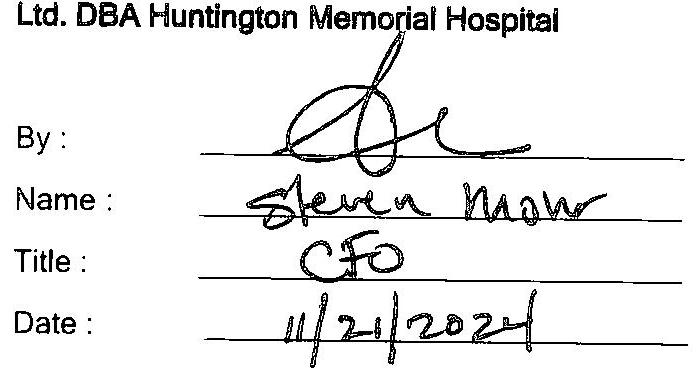 Ltd. DBA Huntington Memorial Hospital
By :
Name : Steven Mohr
Title : CFO
Date : 11/21/2024